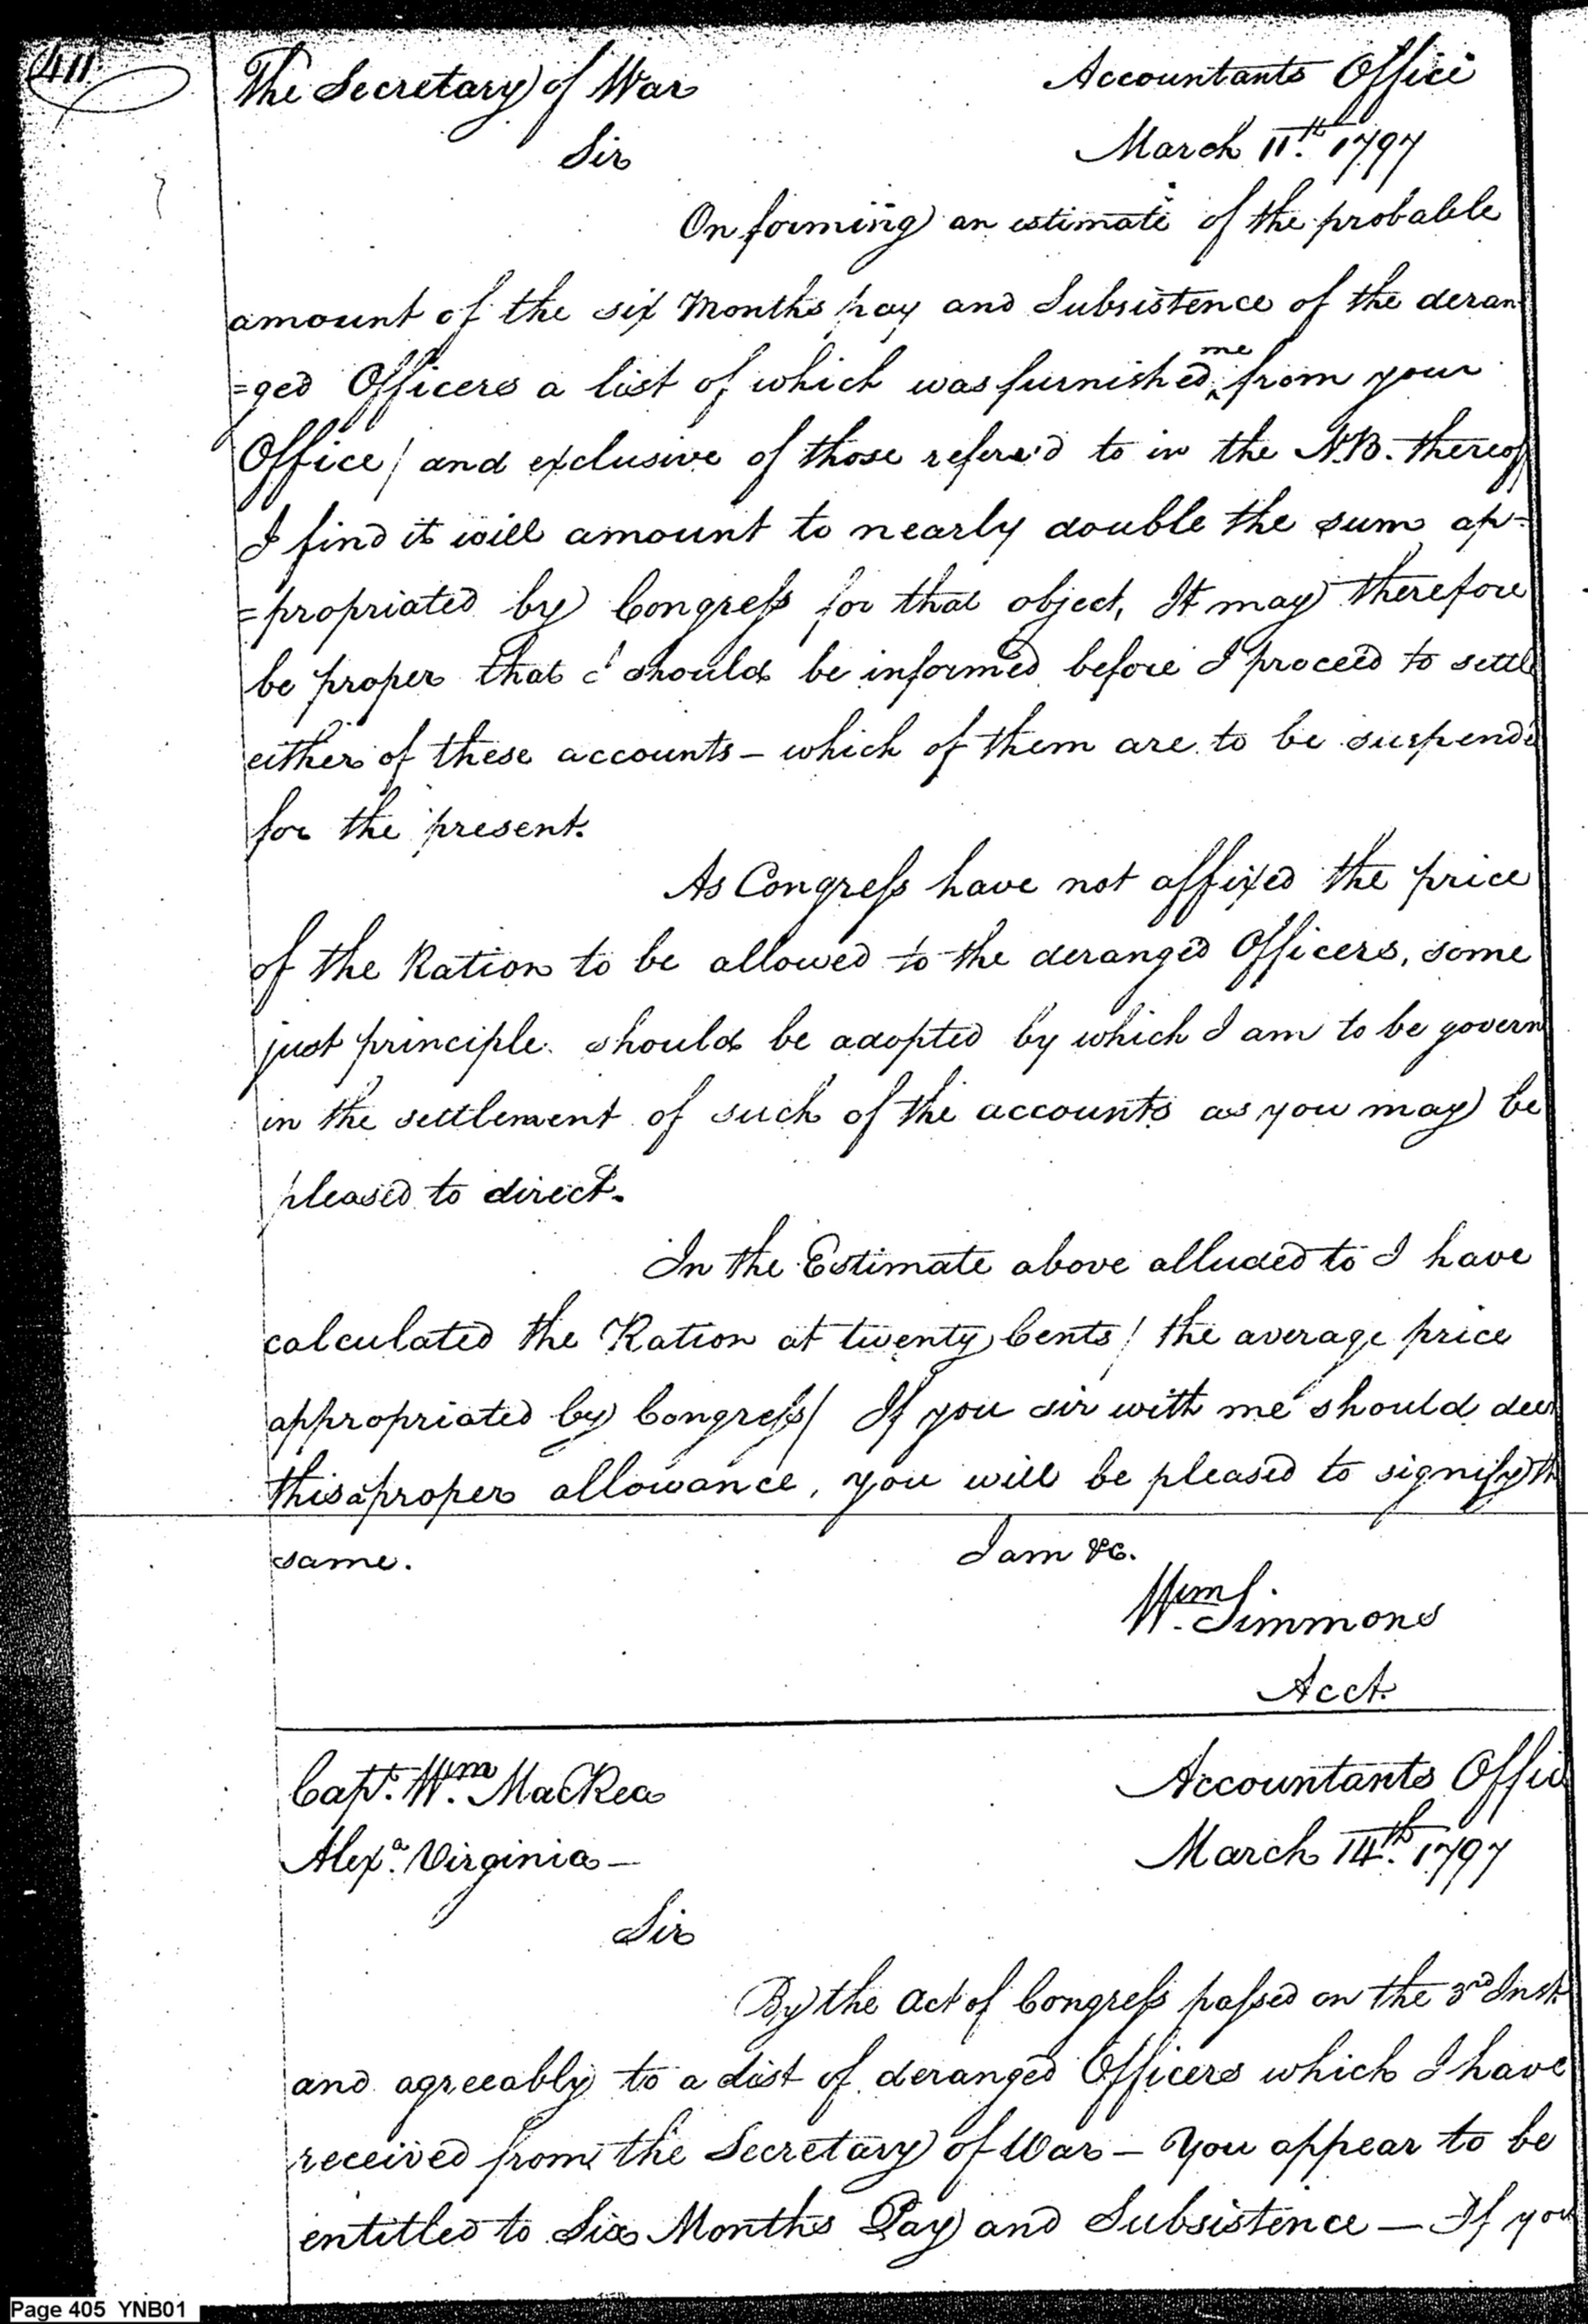 411.
The Secretary of War
Accountants Office
Sir
March 11th. 1797
On forming an estimate of the probable
amount of the six Months pay and Subsistence of the deran
=ged Officers a list of which was furnished me from your
Office / and exclusive of those refered to in the N.B. thereof
I find it will amount to nearly double the sum ap=
=propriated by Congress for that object, It may therefore
be proper that I should be informed before I proceed to settle
either of these accounts – which of them are to be suspende
for the present.
As Congress have not affixed the price
of the Ration to be allowed to the deranged Officers, some
just principle should be adopted by which I am to be govern
in the settlement of such of the accounts as you may be
pleased to direct.
In the Estimate above alluded to I have
calculated the Ration at twenty Cents / the average price
appropriated by Congress / If you sir with me should dee
this a proper allowance, you will be pleased to signify th
same.
I am &c.
Wm. Simmons
Acct.
Capt. Wm. MacRea
Accountants Offic
Alexa. Virginia –
March 14th. 1797
Sir
By the Act of Congress passed on the 3rd Inst.
and agreeably to a list of deranged Officers which I have
received from the Secretary of War – You appear to be
entitled to Six Months Pay and Subsistence – If you
Page 405 YNB01